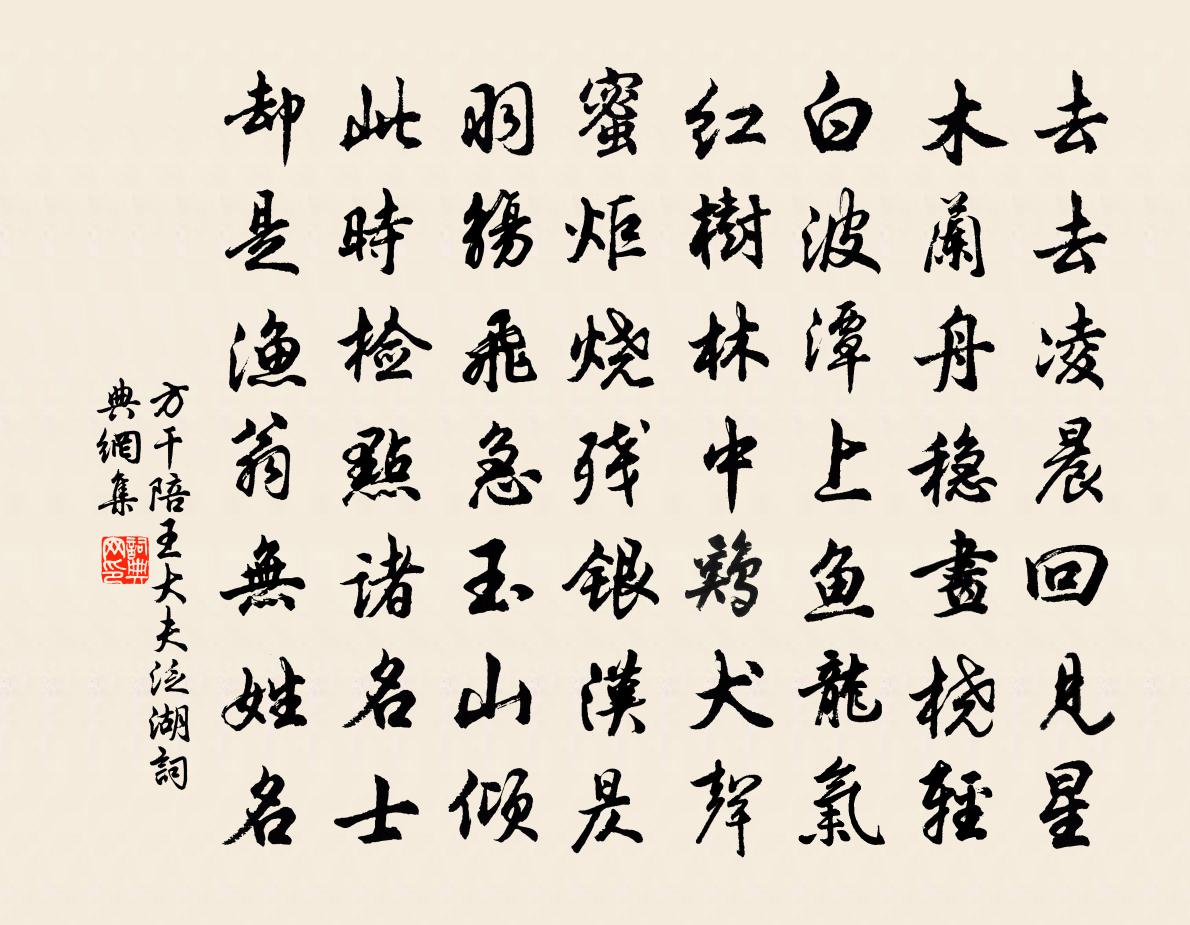 去去凌晨回見星
木蘭舟穩畫桡輕
白波潭上鱼龍氣
红樹林中鷄犬聲
蜜炬烧残銀漢昃
羽觴飛急玉山倾
此時檢點諸名士
却是漁翁無姓名
方干陪王大夫泛湖詞
典網集
詞典网印